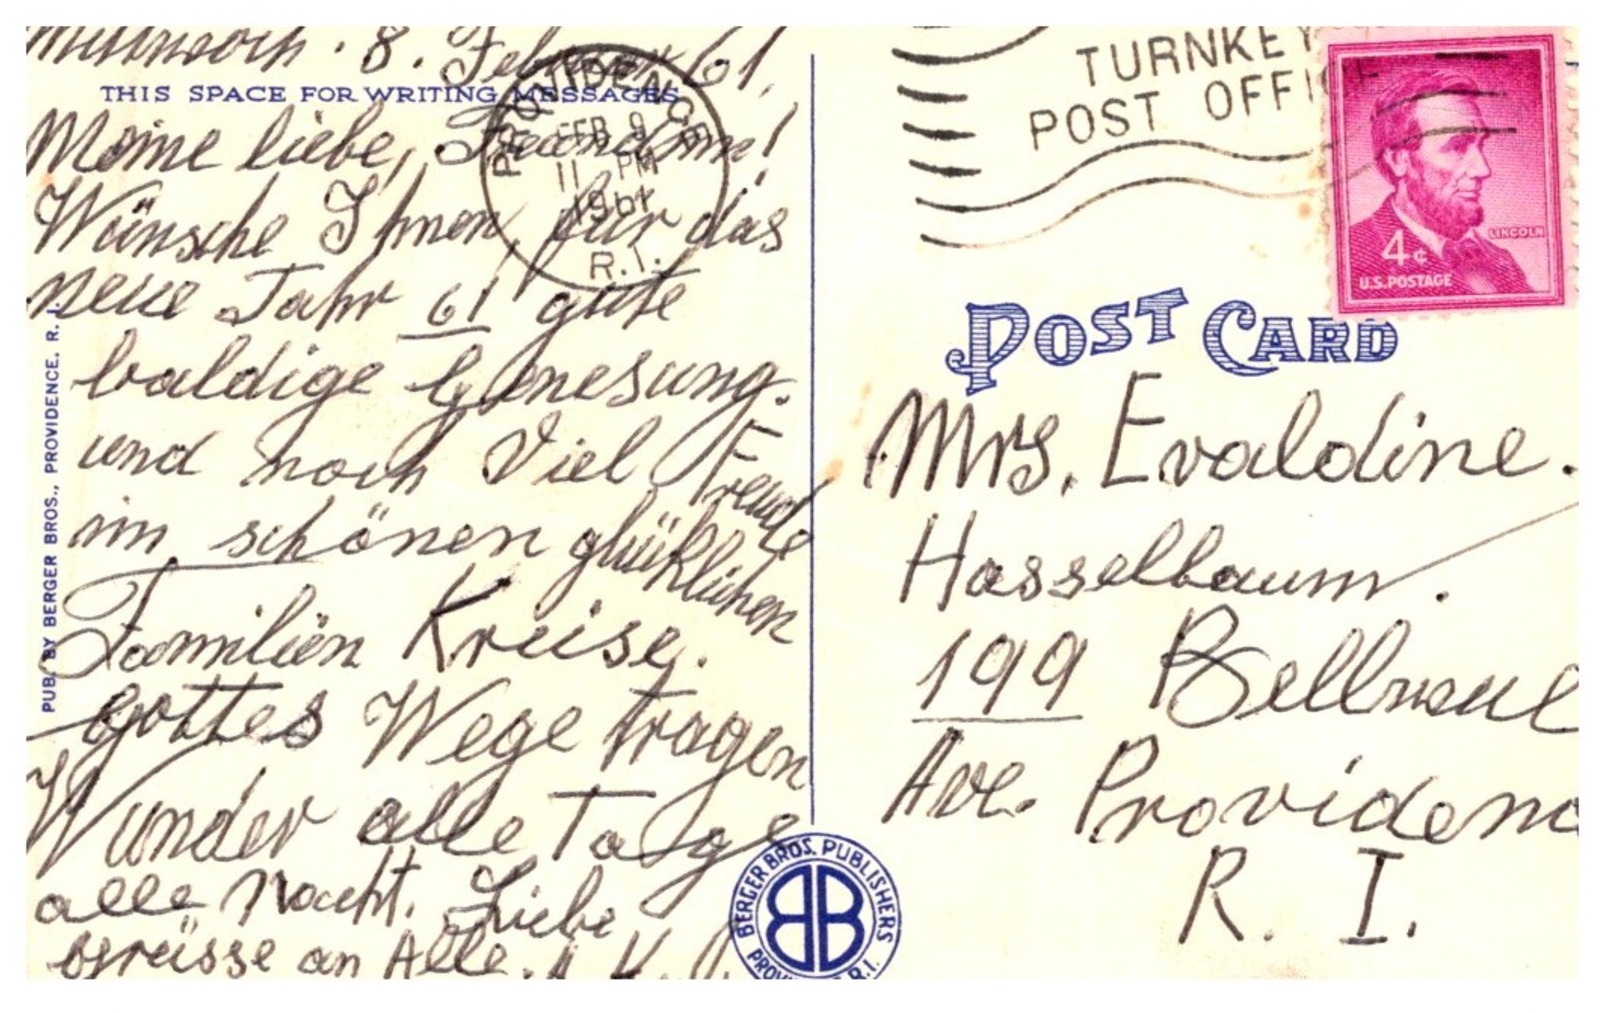 Mittwoch . 8. Februar 61,
THIS SPACE FOR WRITING MESSAGES
Meine liebe, Freundinn!
Wünsche Ihnen, für das
neue Jahr 61 gute
baldige Genesung.
und noch Viel Freude
im schönen glüklichen
Familiën Kreise.
gottes Wege tragen
Wunder alle Tage
alle Nacht. Liebe
Grüsse an Alle.
PUB. BY BERGER BROS., PROVIDENCE, R. I.
PROVIDENCE
FEB 9
11 PM
1961
R.I.
TURNKEY
POST OFFICE
LINCOLN
4¢
U.S. POSTAGE
POST CARD
Mrs. Evaldine.
Hasselbaum.
199
Ave. Providenc
R. I.
BERGER BROS. PUBLISHERS
BB
R.I.